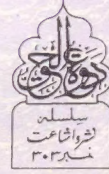 دعوة الحق
سلسلہ
نشر و اشاعت
نمبر ۳۰۳